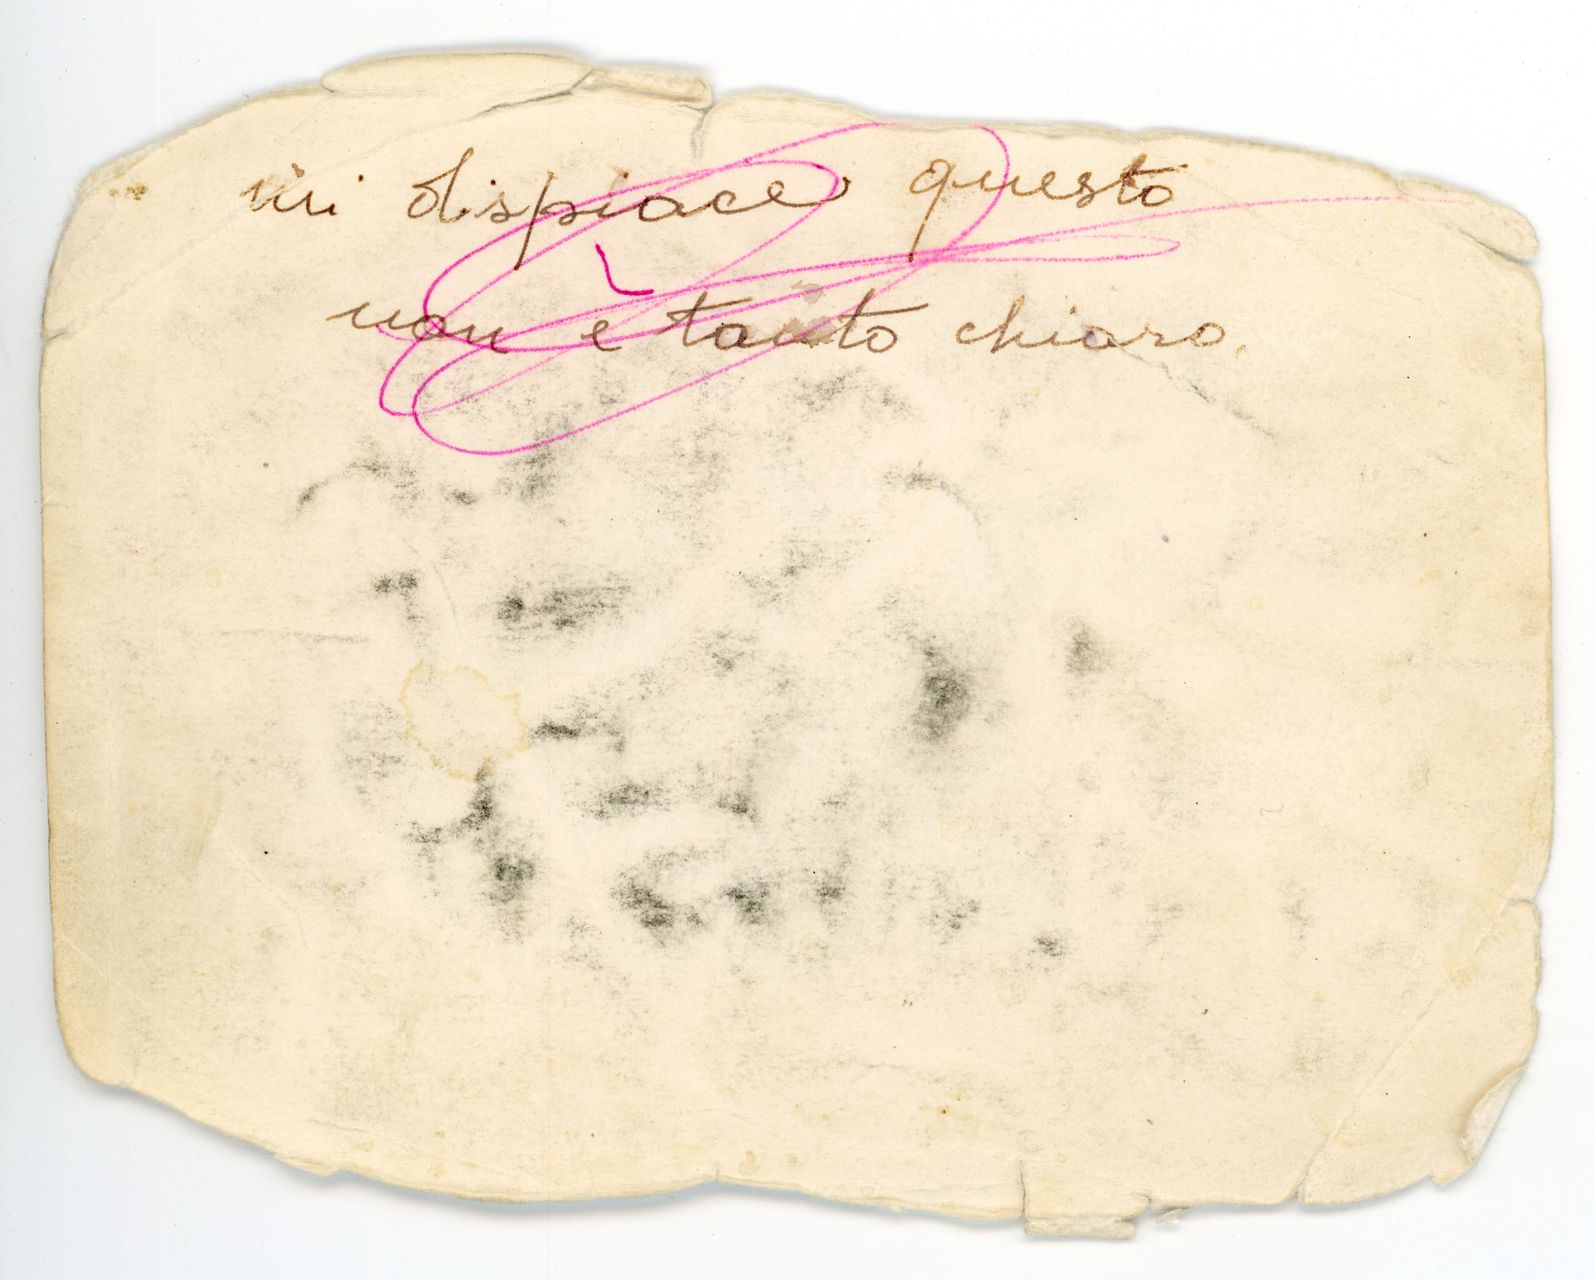 mi dispiace questo
non è tanto chiaro.